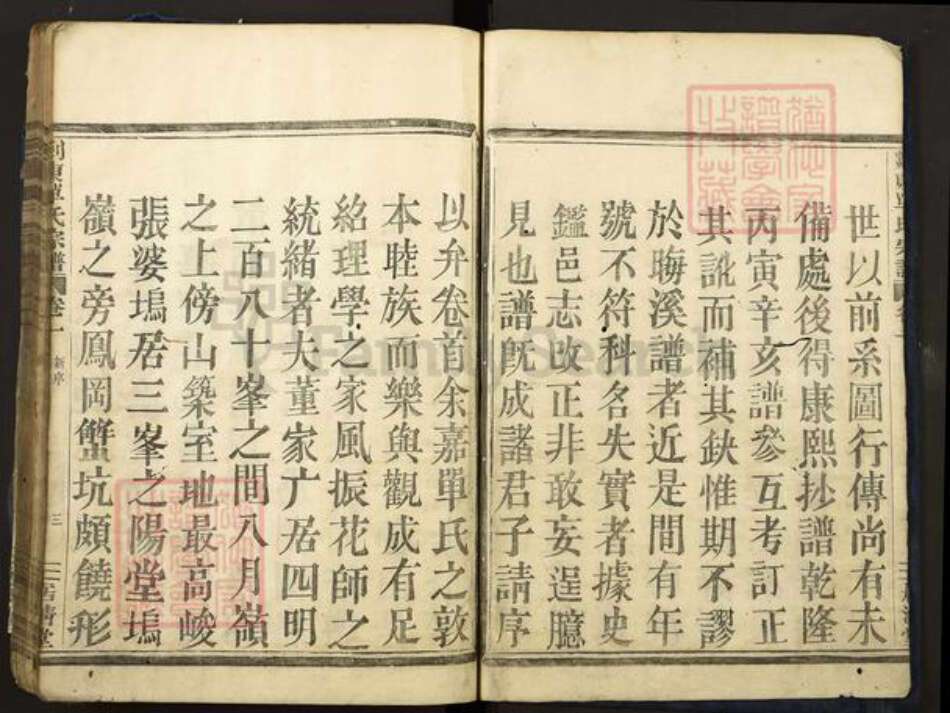 世以前系圖行傳尚有未
備處後得康熙抄譜乾隆
丙寅辛亥譜參互考訂正
其訛而補其缺惟期不謬
於晦溪譜者近是間有年
號不符科名失實者據史
鑑邑志改正非敢妄逞臆
見也譜旣成諸君子請序
以弁卷首余嘉單氏之敦
本睦族而樂與觀成有足
紹理學之家風振花師之
統緒者夫董家亣居四明
二百八十峯之間八月嶺
之上傍山築室地最高峻
張婆塢居三峯之陽堂塢
嶺之旁鳳岡蟹坑頗饒形
剡東單氏宗譜 卷一 新序 三
FamilySearch